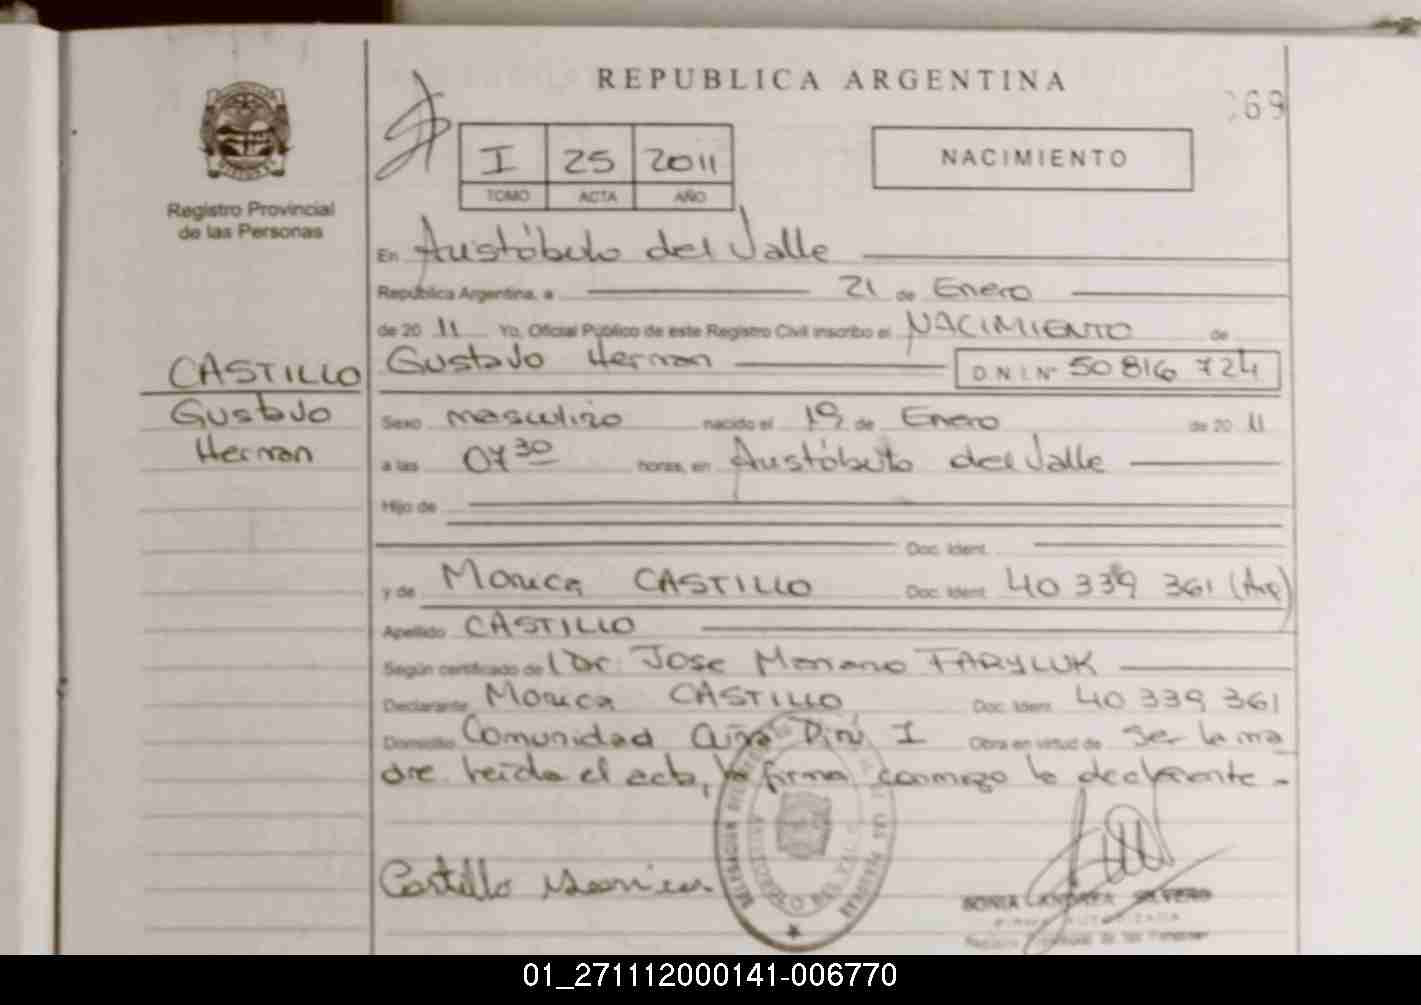 REPUBLICA ARGENTINA
69
I 25 2011
TOMO ACTA AÑO
NACIMIENTO
Registro Provincial
de las Personas
En Aristóbulo del Valle
República Argentina, a 21 de Enero
de 20 11 Yo, Oficial Público de este Registro Civil inscribo el NACIMIENTO de
CASTILLO
Gustavo
Hernan
Gustavo Hernan D.N.I. Nº 50 816 724
Sexo masculino nacido el 19 de Enero de 20 11
a las 07 30 horas, en Aristóbulo del Valle
Hijo de
Doc. Ident.
y de Monica CASTILLO Doc. Ident. 40 339 361 (Arg)
Apellido CASTILLO
Según certificado de Dr. Jose Mariano TARYLUK
Declarante Monica CASTILLO Doc. Ident. 40 339 361
Domicilio Comunidad I Obra en virtud de Ser la ma
dre leida el acta, la firma conmigo la declarante -
Castillo Monica
SONIA ANDREA SILVERO
FIRMA AUTORIZADA
Registro Provincial de las Personas
01_271112000141-006770